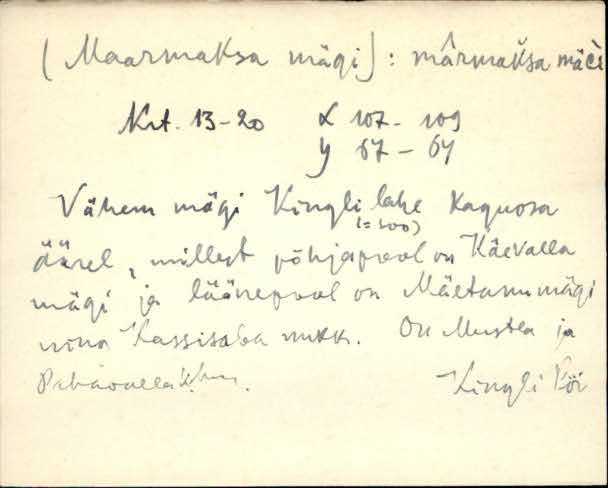 (Maarmaksa mägi): mârmaksa mäè
Krt. 13-20 X 107-109
y 67-64
Vähem mägi Kingli lahe kaguosa
(=soo)
äärel, millest põhjapool on Käevalla
mägi ja läänepool on Mäetammmägi
nina Kassisaba nukk. On Mustla ja
Kingli Pöi